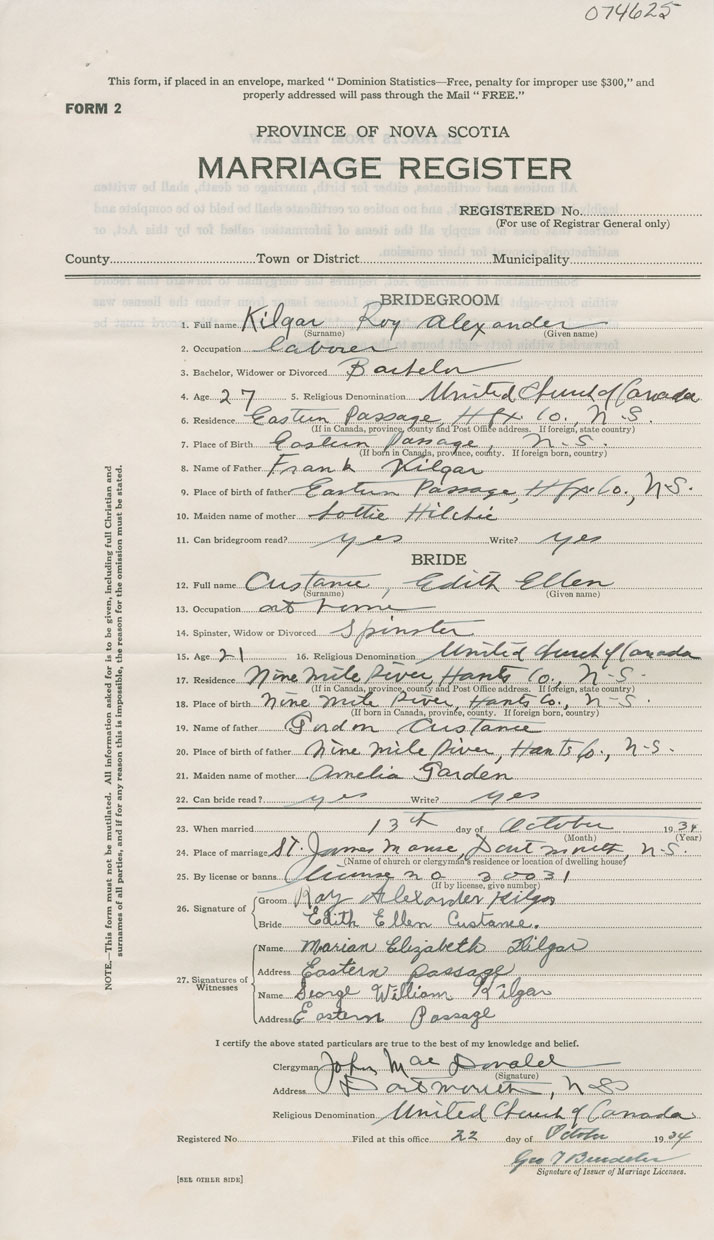 074625
This form, if placed in an envelope, marked " Dominion Statistics—Free, penalty for improper use $300," and
properly addressed will pass through the Mail " FREE."
FORM 2
PROVINCE OF NOVA SCOTIA
MARRIAGE REGISTER
REGISTERED No.
(For use of Registrar General only)
County Town or District Municipality
BRIDEGROOM
1. Full name Kilgar Roy Alexander
(Surname) (Given name)
2. Occupation laborer
3. Bachelor, Widower or Divorced Bachelor
4. Age 27 5. Religious Denomination United Church of Canada
6. Residence Eastern Passage, Hfx Co., N.S.
(If in Canada, province, county and Post Office address. If foreign, state country)
7. Place of Birth Eastern Passage, N.S.
(If born in Canada, province, county. If foreign born, country)
8. Name of Father Frank Kilgar
9. Place of birth of father Eastern Passage, Hfx Co., N.S.
10. Maiden name of mother Lottie Hilchie
11. Can bridegroom read? yes Write? yes
BRIDE
12. Full name Custance, Edith Ellen
(Surname) (Given name)
13. Occupation at home
14. Spinster, Widow or Divorced Spinster
15. Age 21 16. Religious Denomination United Church of Canada
17. Residence Nine Mile River, Hants Co., N-S-
(If in Canada, province, county and Post Office address. If foreign, state country)
18. Place of birth Nine Mile River, Hants Co., N-S.
(If born in Canada, province, county. If foreign born, country)
19. Name of father Gordon Custance
20. Place of birth of father Nine Mile River, Hants Co., N-S.
21. Maiden name of mother Amelia Garden
22. Can bride read? yes Write? yes
23. When married 13th day of October 1934
(Month) (Year)
24. Place of marriage St. James Manse, Dartmouth, N-S.
(Name of church or clergyman's residence or location of dwelling house)
25. By license or banns License no 30031
(If by license, give number)
26. Signature of Groom Roy Alexander Kilgar
Bride Edith Ellen Custance.
27. Signatures of Witnesses
Name Marian Elizabeth Kilgar
Address Eastern Passage
Name George William Kilgar
Address Eastern Passage
I certify the above stated particulars are true to the best of my knowledge and belief.
Clergyman John Mac Donald
(Signature)
Address Dartmouth, N S
Religious Denomination United Church of Canada
Registered No. Filed at this office 22 day of October 1934
Geo
Signature of Issuer of Marriage Licenses.
[SEE OTHER SIDE]
NOTE.—This form must not be mutilated. All information asked for is to be given, including full Christian and
surnames of all parties, and if for any reason this is impossible, the reason for the omission must be stated.